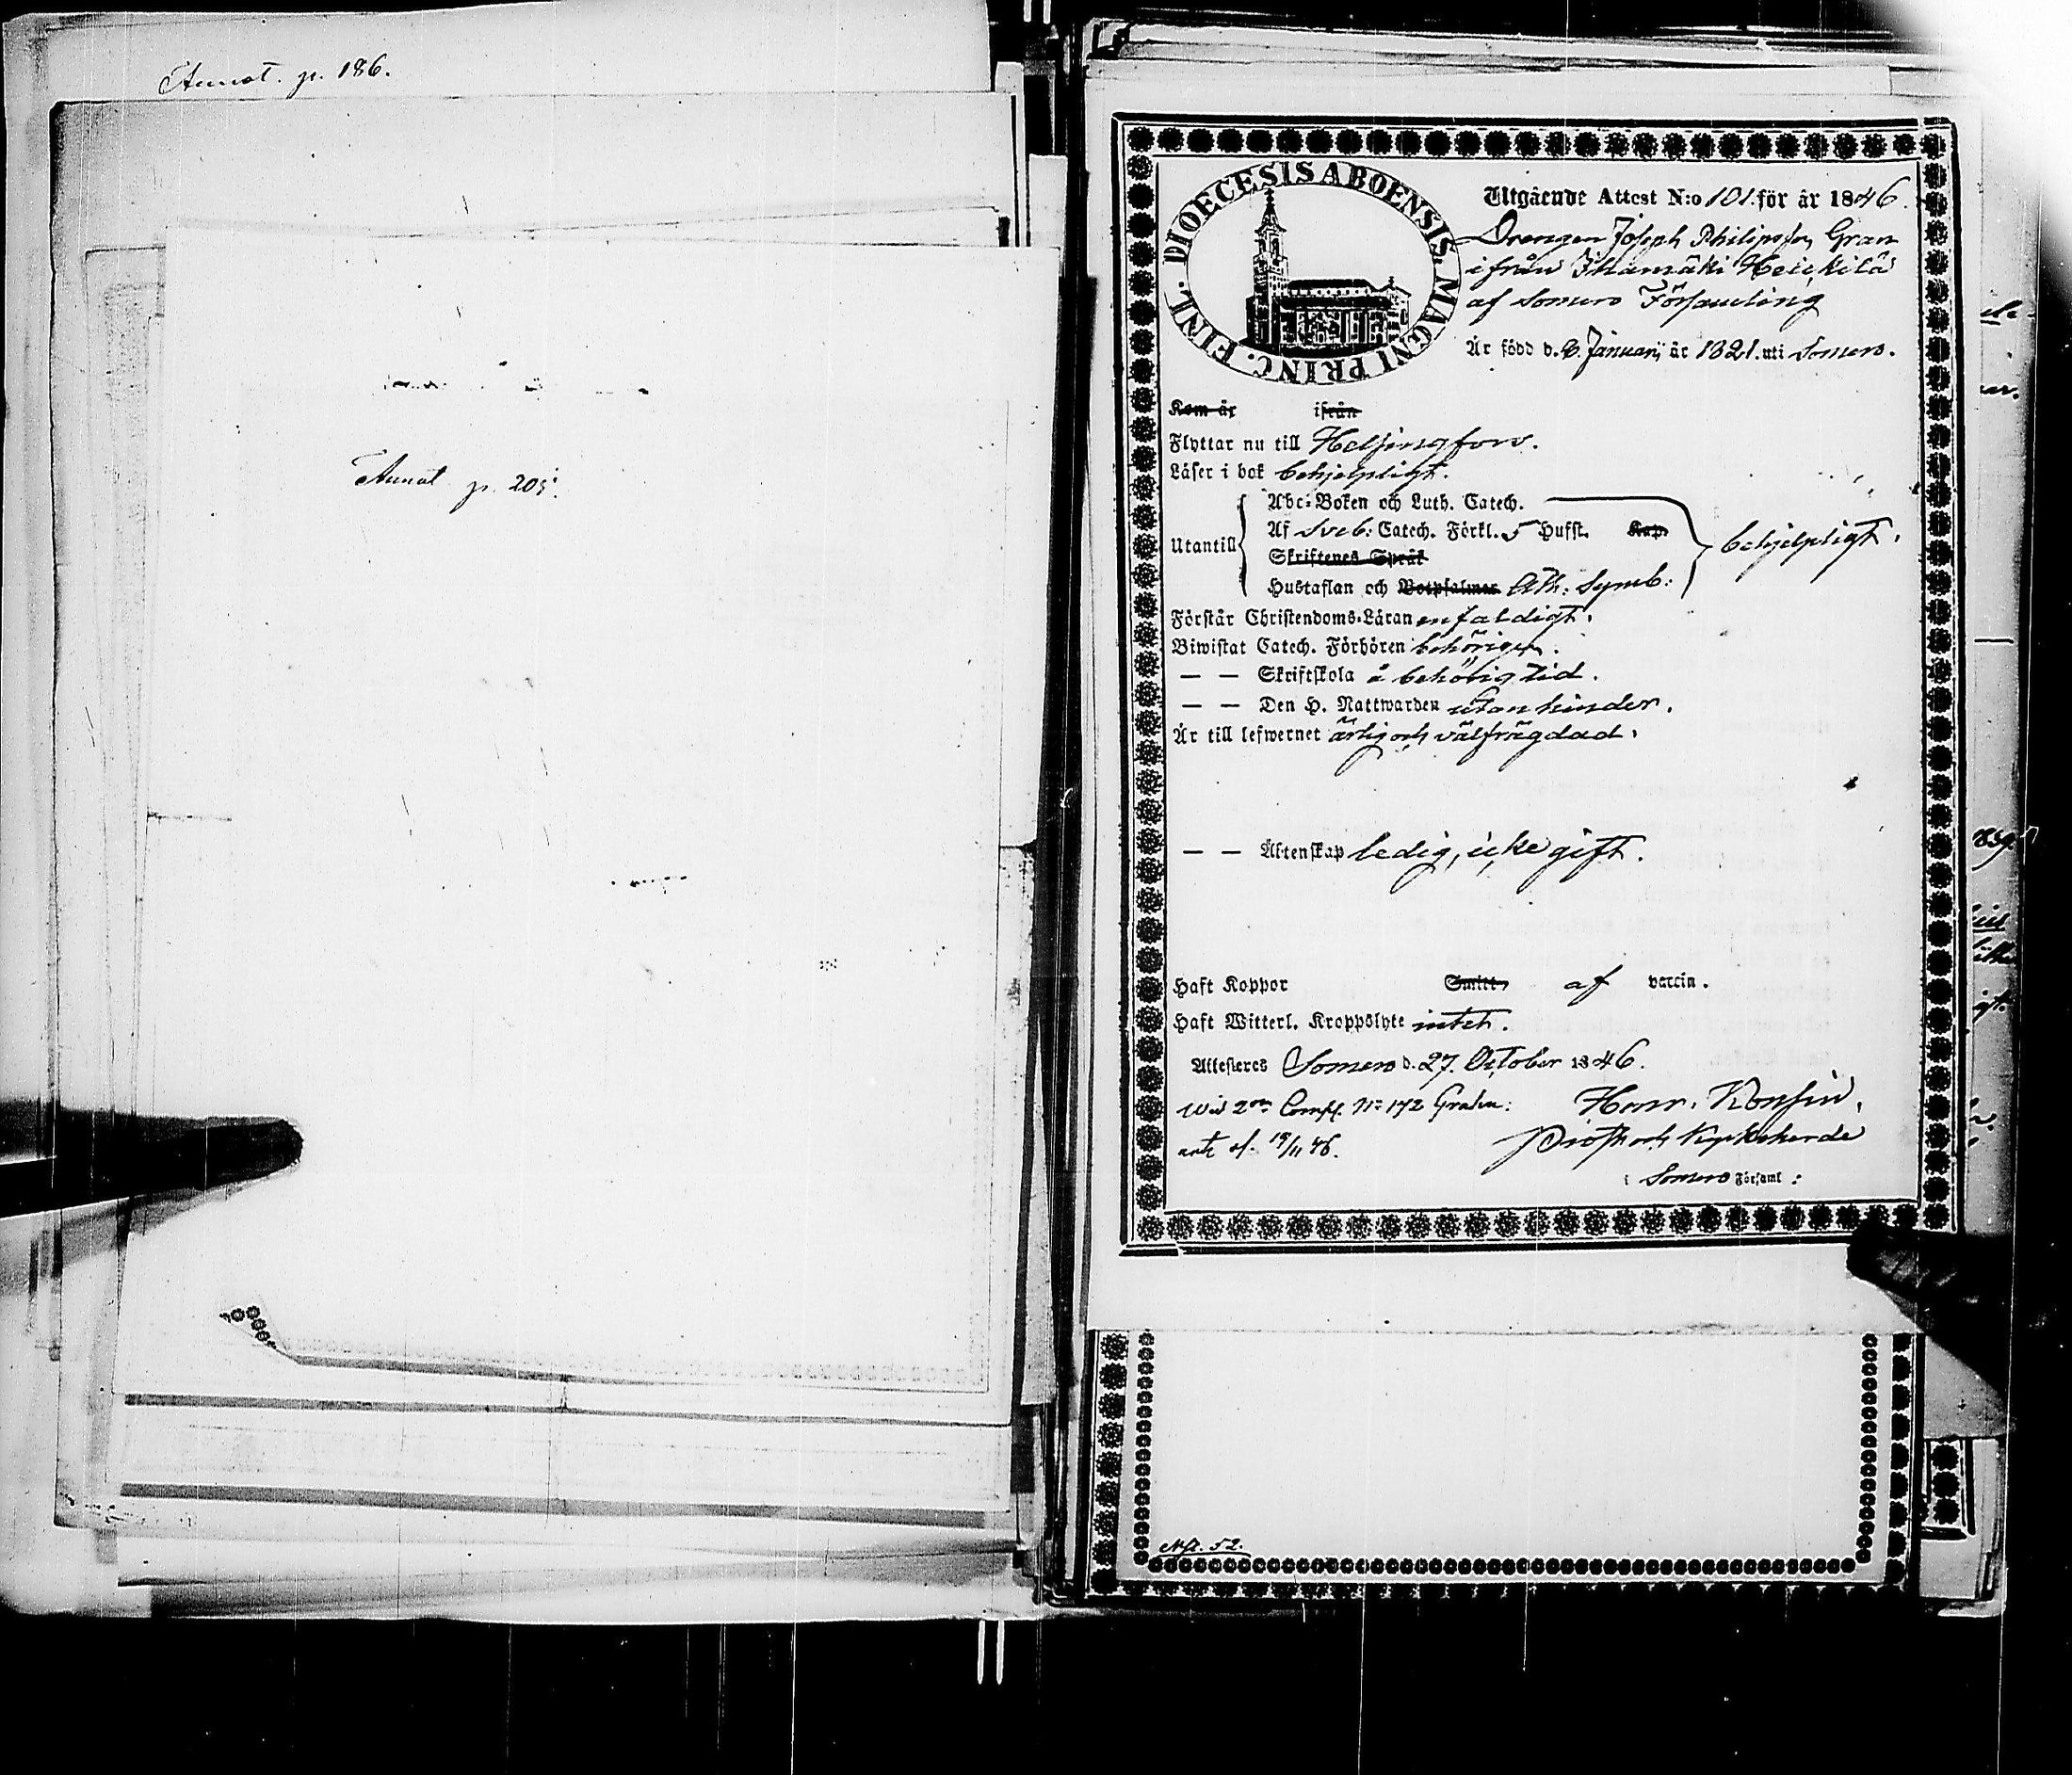 Annot. p. 186.
Annot p. 205.
DIOECESIS ABOENSIS. MAGNI PRINC. FINL.
Utgående Attest N:o 101. för år 1846.
Drengen Joseph Philipsson Gran
ifrån Ihamäki Heickilä
af Somero Församling
Är född d. 8 Januarii år 1821. uti Somero.
Kom år ifrån
Flyttar nu till Helsingfors.
Läser i bok behjelpligt.
Abc-Boken och Luth. Catech.
Utantill Af Sveb: Catech. Förkl. 5 Hufst. Kap. behjelpligt.
Skriftenes Språk
Hustaflan och Botpsalmer Ath: Symb:
Förstår Christendoms-Läran enfaldigt.
Biwistat Catech. Förhören behörigen.
— — Skriftskola å behörig tid.
— — Den H. Nattwarden utan hinder.
Är till lefwernet ärlig och välfrägdad.
— — Äktenskap ledig, icke gift.
Haft Koppor Smitt- af vaccin.
Haft Witterl. Kroppslyte intet.
Attesteras Somero d. 27. October 1846.
Wid 2om Comp. N: 172 Henr. Konsin.
ank d. 19/11 46. Prost och Kyrkoherde
i Somero Församl:
52.